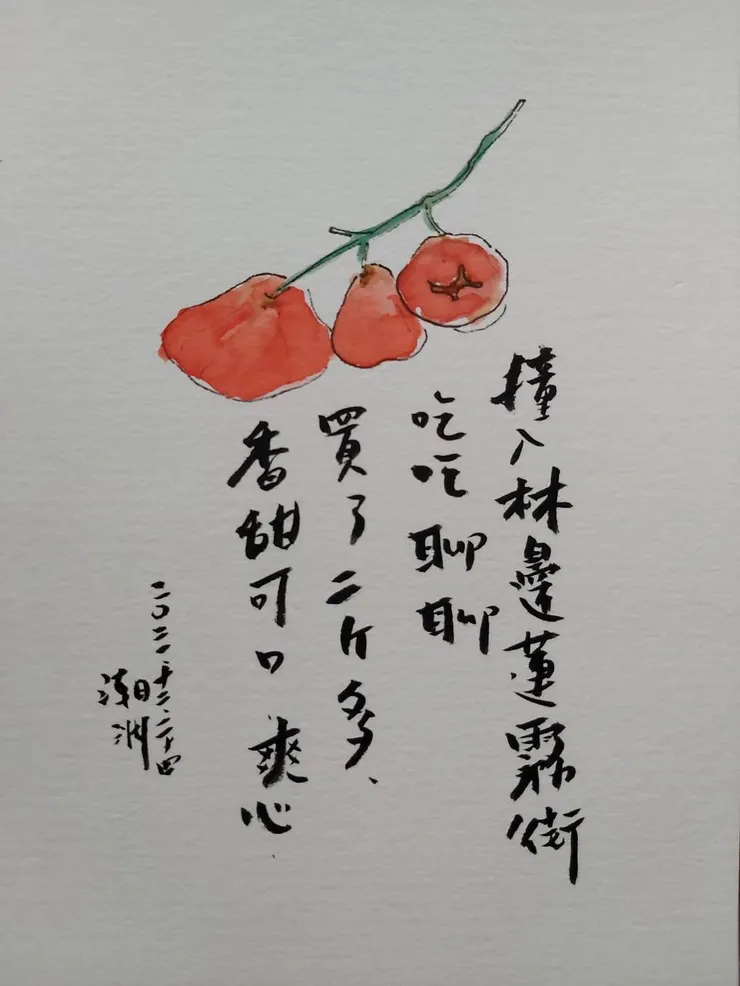 撞入林邊蓮霧街
吃吃聊聊
買了二斤多、
香甜可口爽心
二〇二一十二、二十四
潮洲